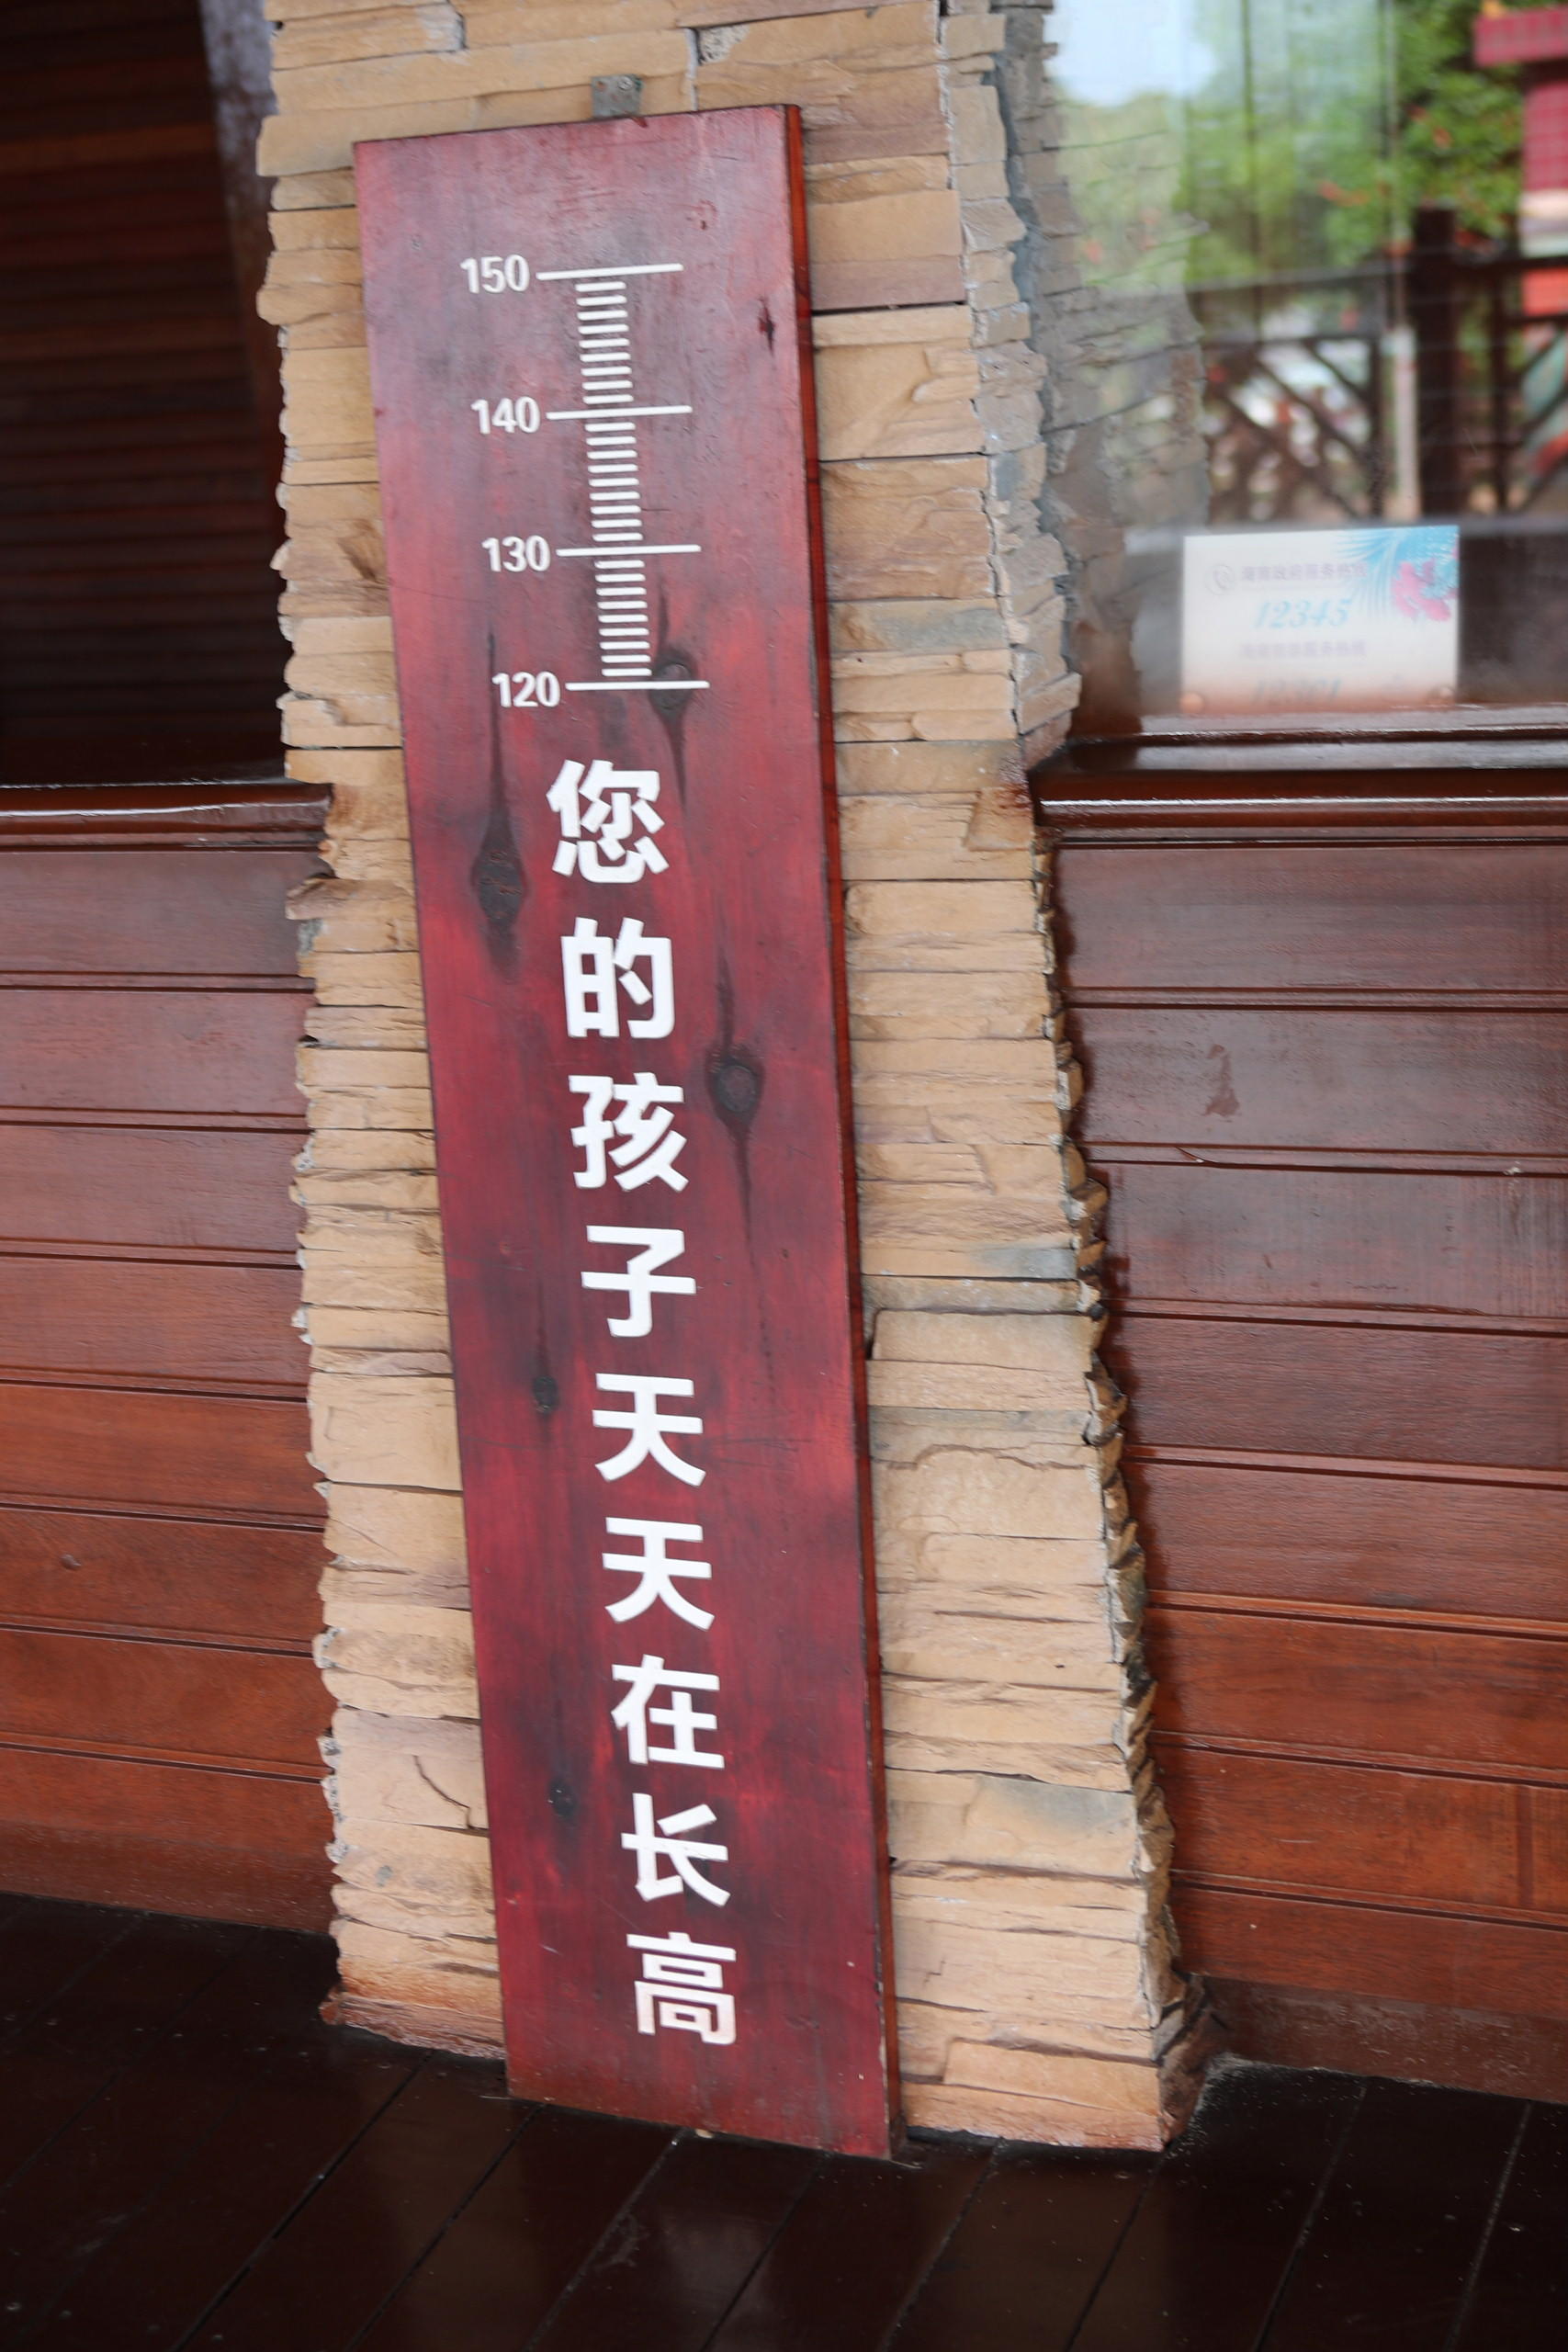 150
140
130
120
您的孩子天天在长高
12345